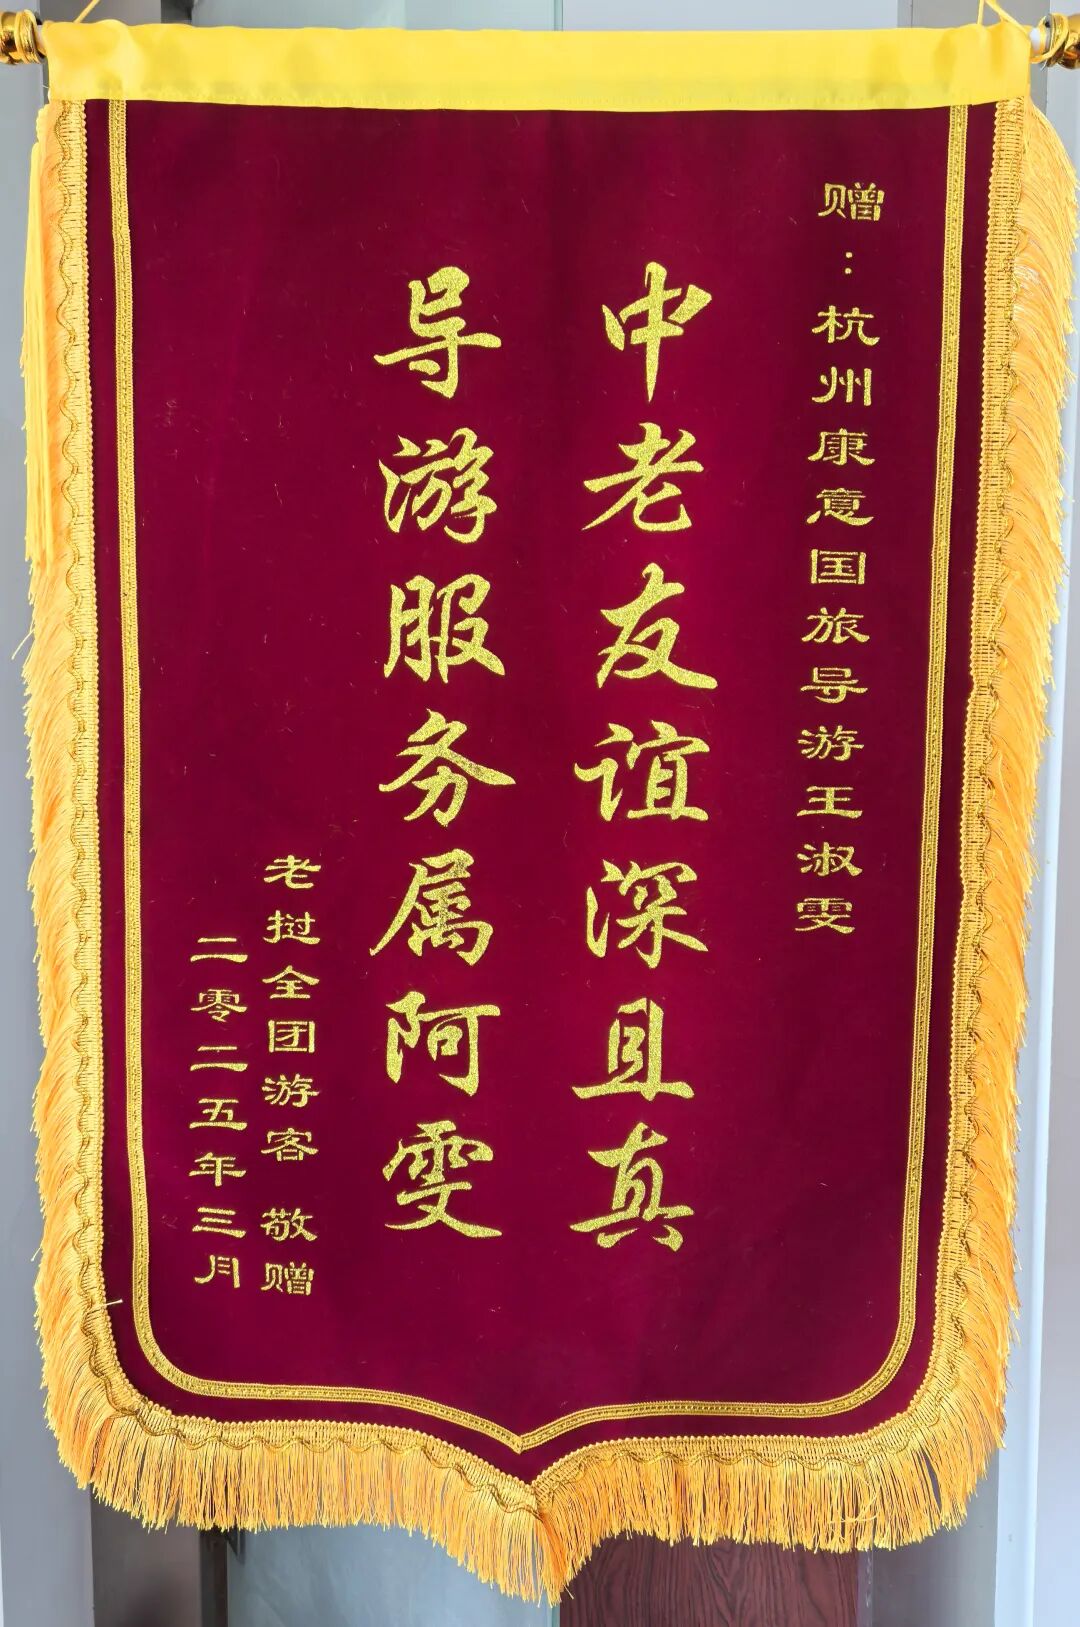 赠：杭州康意国旅导游王淑雯
中老友谊深且真
导游服务属阿雯
老挝全团游客 敬赠
二零二五年三月